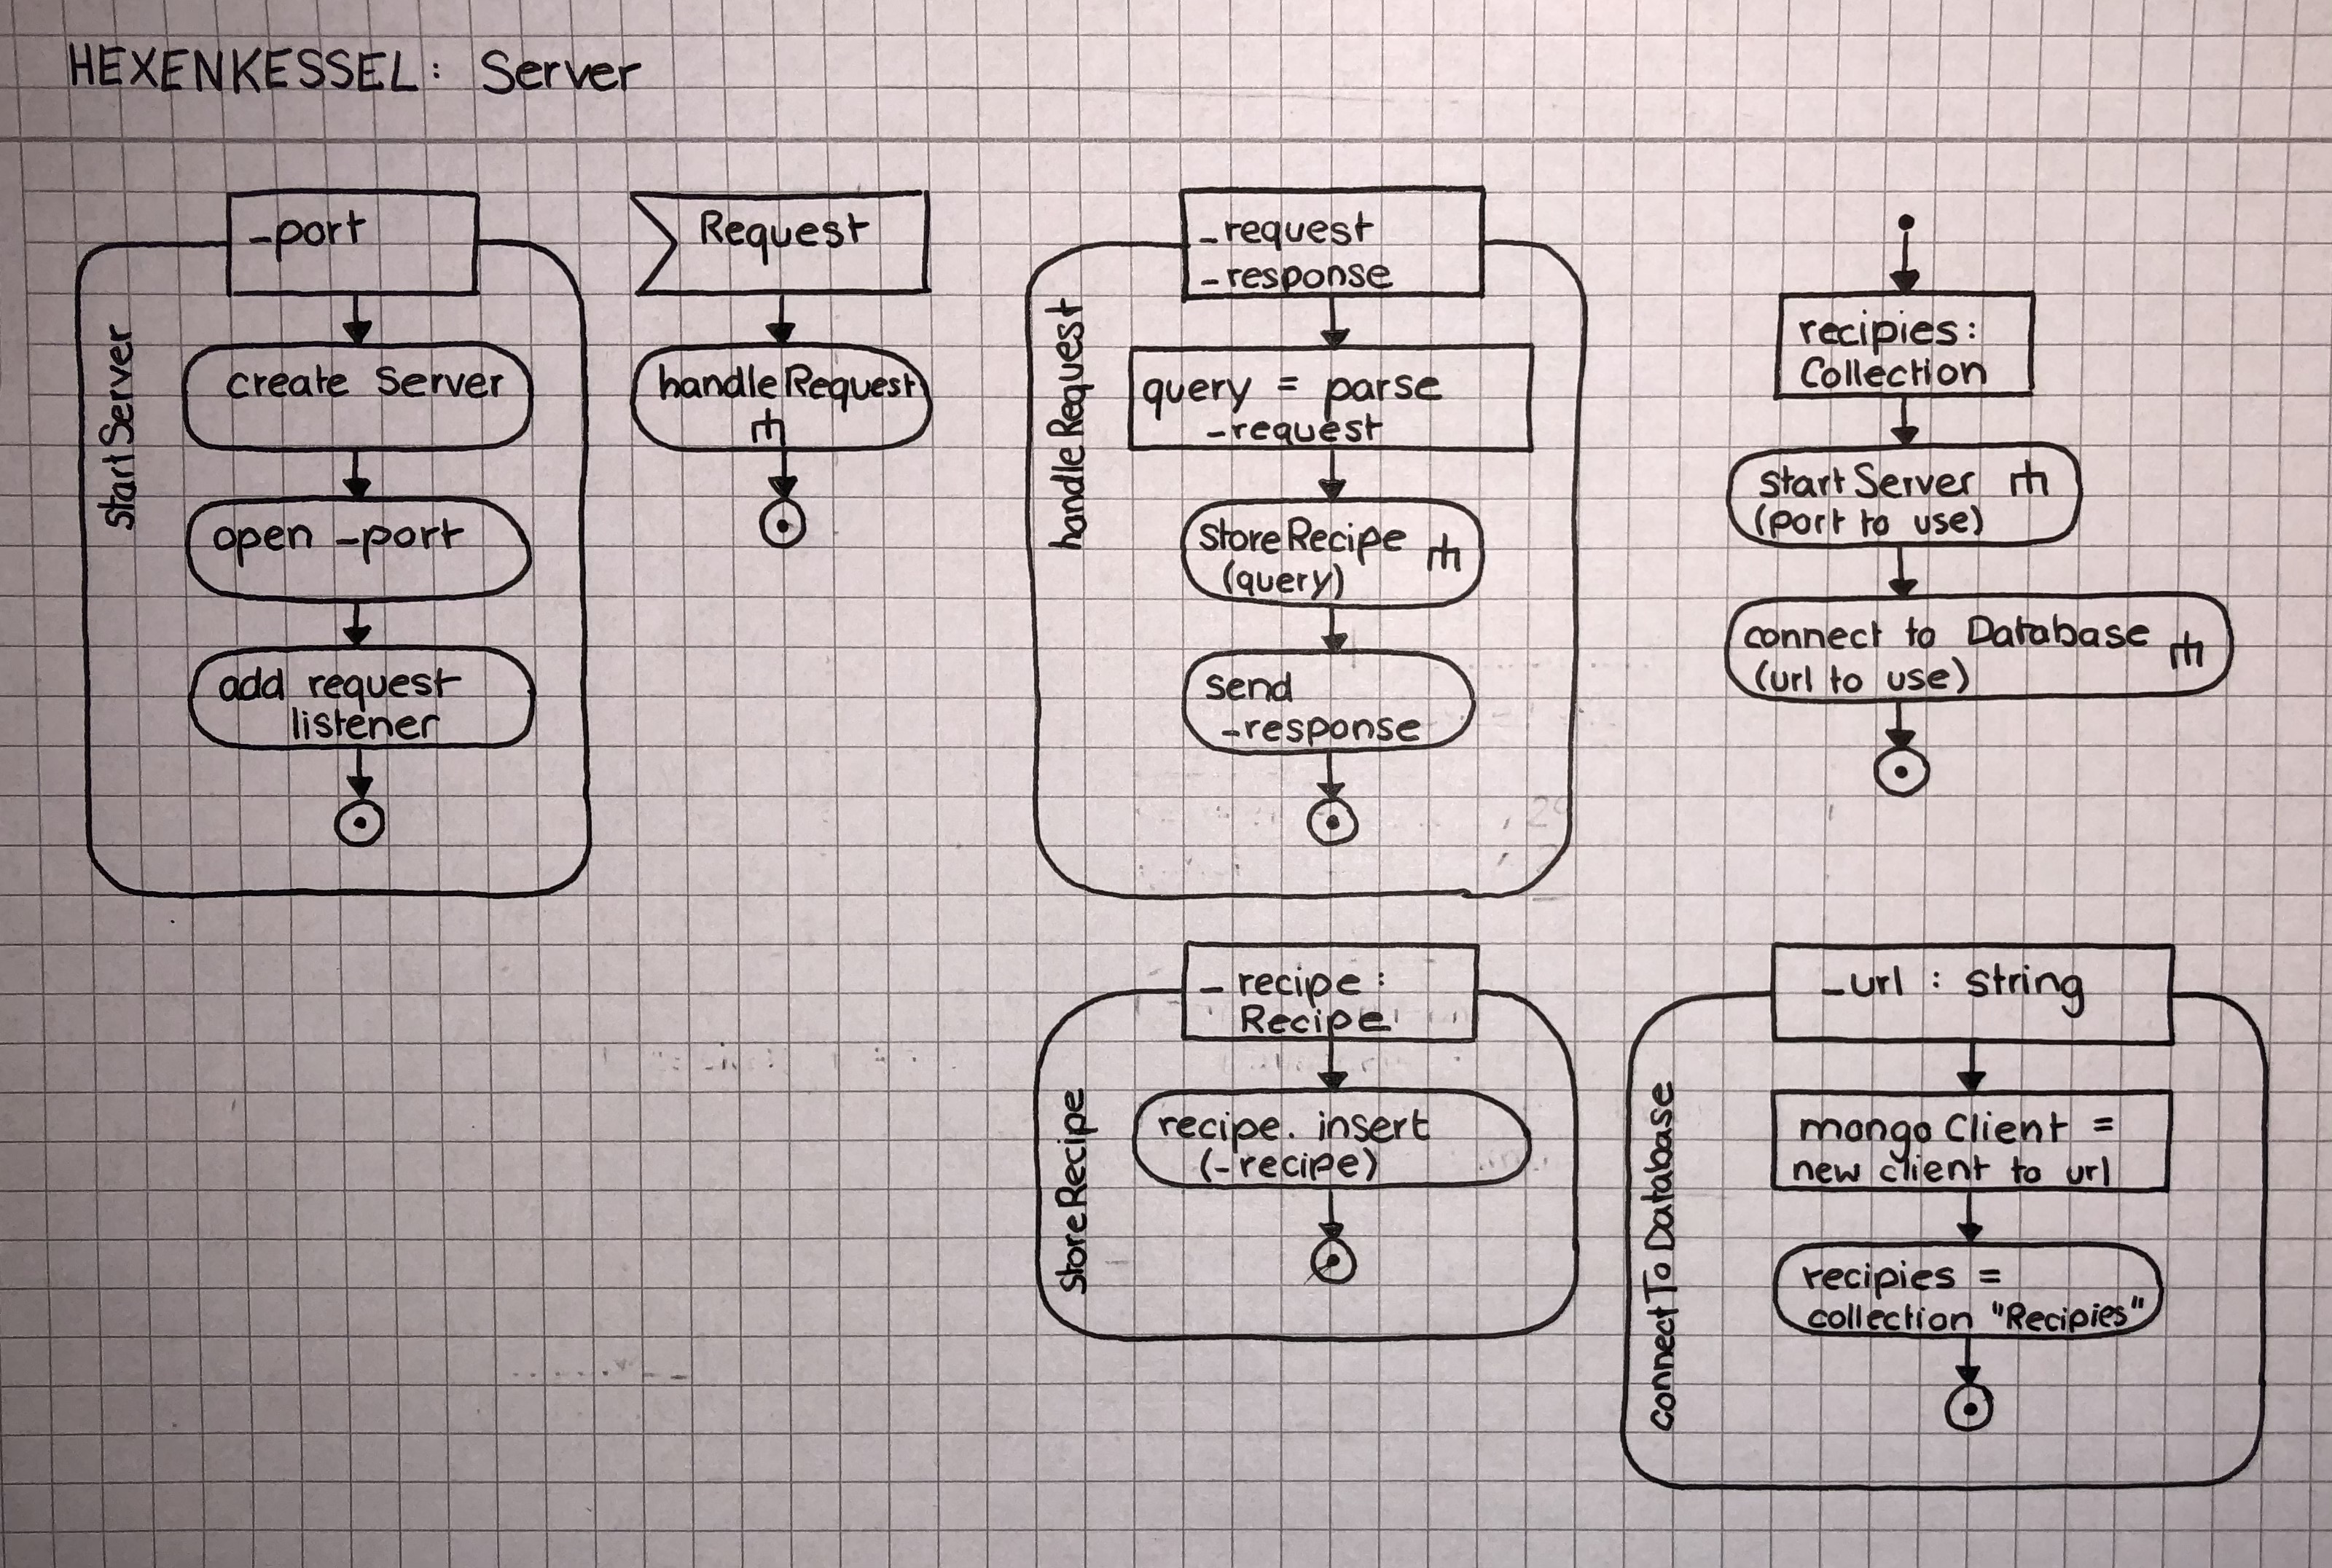 HEXENKESSEL: Server
_port
StartServer
create Server
open _port
add request
listener
Request
handleRequest
_request
_response
handleRequest
query = parse
_request
storeRecipe
(query)
send
_response
recipies:
Collection
startServer
(port to use)
connect to Database
(url to use)
_ recipe:
Recipe
storeRecipe
recipe. insert
(_recipe)
_url : string
connectToDatabase
mongoClient =
new client to url
recipies =
collection "Recipies"